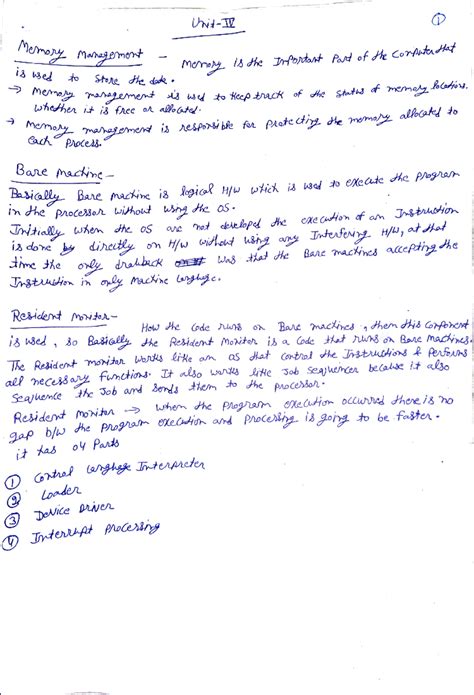 Unit-IV
1
Memory Management - Memory is the Important Part of the Computer that
is used to Store the data.
→ Memory management is used to Keep track of the Status of memory locations,
whether it is free or allocated.
→ Memory management is responsible for protecting the memory allocated to
each process.
Bare Machine -
Basically Bare Machine is logical H/W which is used to execute the Program
in the processor without using the OS.
Initially when the OS are not developed the execution of an Instruction
is done by directly on H/W without using any Interfering H/W, at that
time the only drawback was that the Bare machines accepting the
Instruction in only Machine language.
Resident Monitor -
How the Code runs on Bare machines, them this Component
is used, so Basically the Resident Monitor is a Code that runs on Bare Machines.
The Resident monitor works like an OS that Control the Instructions & Performs
all necessary Functions. It also works like Job Sequencer because it also
Sequence the Job and sends them to the processor.
Resident Monitor → when the Program execution occurred there is no
gap b/w the Program execution and Processing is going to be faster.
it has 04 Parts
1 Control language Interpreter
2 Loader
3 Device Driver
4 Interrupt Processing